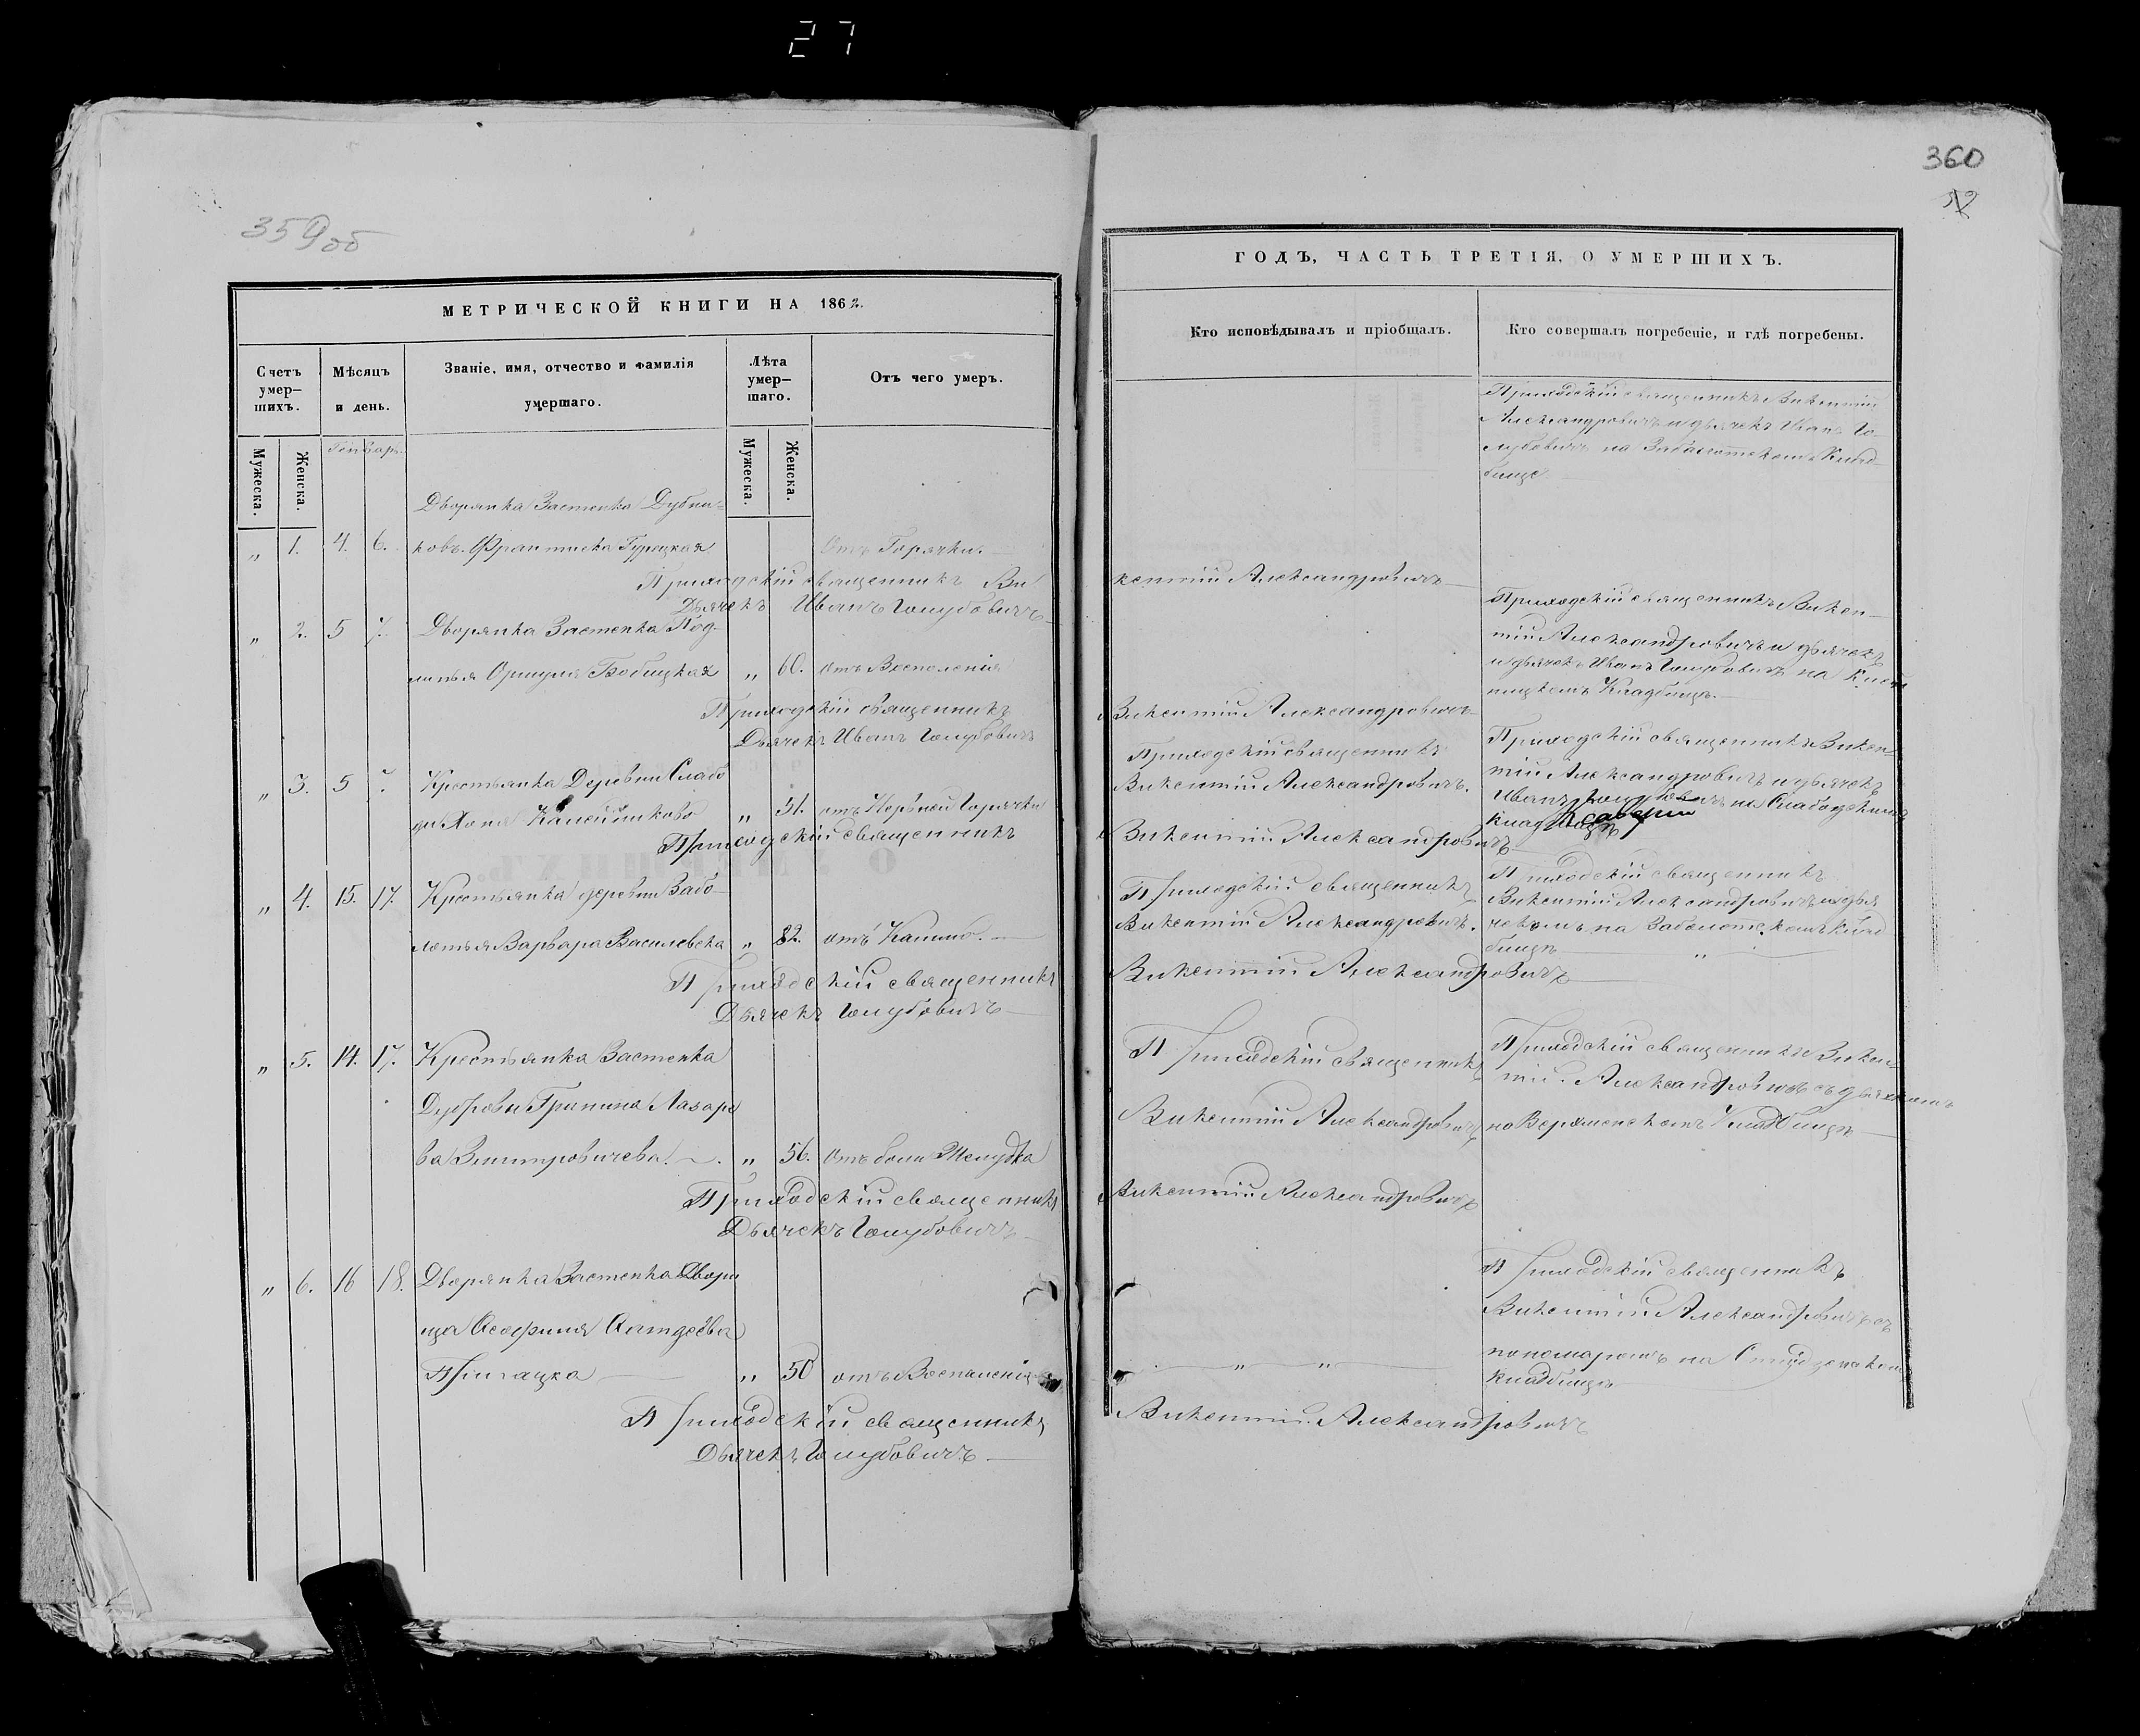 27
359об
МЕТРИЧЕСКОЙ КНИГИ НА 1862.
Счетъ умер-шихъ.
Мѣсяцъ и день.
Званіе, имя, отчество и фамилія умершаго.
Лѣта умер-шаго.
Отъ чего умеръ.
Мужеска.
Женска.
Генварь.
Мужеска.
Женска.
Дворянка Застенка Дубни-
„ 1. 4. 6. ковъ Гурецкая Отъ Горячки.
Приходскій священникъ Ви
Дьячекъ Иванъ Голубовичъ
„ 2. 5 7. Дворянка Застенка Под-
Бобицкая „ 60. отъ Воспаленія
Приходскій священникъ
Дьячекъ Иванъ Голубовичъ
„ 3. 5 7. Крестьянка Деревни Слабо
ды „ 31. отъ Нервной горячки
Приходскій священникъ
„ 4. 15. 17. Крестьянка деревни Забо-
лотья Варвара Василевска „ 82. отъ Кашлю.
Приходскій священникъ
Дьячекъ Голубовичъ
„ 5. 14. 17. Крестьянка Застенка
Дубровы Лазаре
ва „ 56. Отъ боли Желудка
Приходскій священникъ
Дьячекъ Голубовичъ
„ 6. 16 18. Дворянка Застенка Двори
ща
„ 50 отъ Воспаленія
Приходскій священникъ
Дьячекъ Голубовичъ
360
ГОДЪ, ЧАСТЬ ТРЕТІЯ, О УМЕРШИХЪ.
Кто исповѣдывалъ и пріобщалъ.
Кто совершалъ погребеніе, и гдѣ погребены.
Приходскій священникъ Викентій
Александровичъ и дьячекъ Иванъ Го-
лубовичъ на Заболотскомъ Клад-
бище
кентій Александровичъ
Приходскій священникъ Викен-
тій Александровичъ и дьячекъ
и дьячекъ Иванъ Голубовичъ на
Кладбищѣ.
Викентій Александровичъ
Приходскій священникъ
Викентій Александровичъ.
Приходскій священникъ Викен-
тій Александровичъ и дьячекъ
Иванъ Голубовичъ на Слабодскимъ
Викентій Александровичъ
Приходскій священникъ
Викентій Александровичъ.
Приходскій священникъ
Викентій Александровичъ и дья
чекомъ на Заболотскомъ Клад
бищѣ
Викентій Александровичъ
Приходскій священникъ
Викентій Александровичъ
Приходскій священникъ Викен-
тій Александровичъ съ дьячкомъ
на Верхменскомъ Кладбищѣ
Викентій Александровичъ
Приходскій священникъ
Викентій Александровичъ съ
пономаремъ на
Кладбищѣ
Викентій Александровичъ